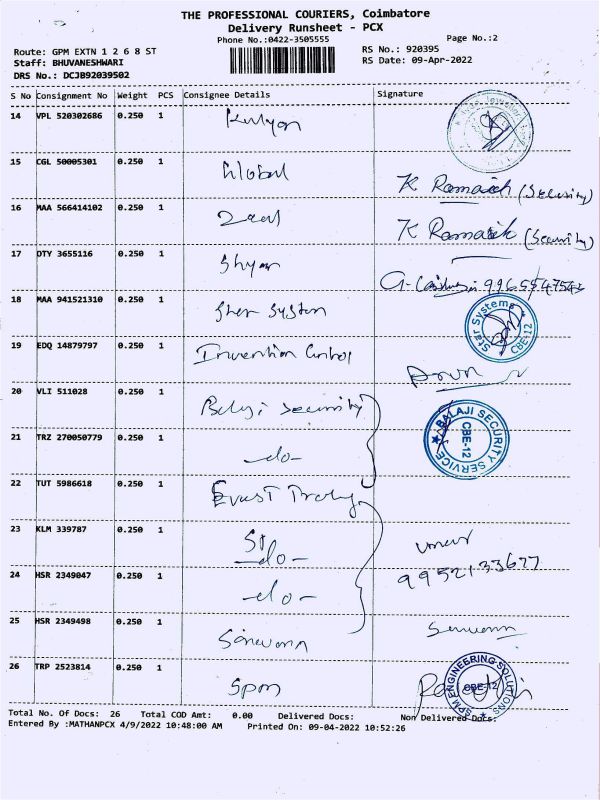 THE PROFESSIONAL COURIERS, Coimbatore
Delivery Runsheet - PCX
Phone No.:0422-3505555
Page No.:2
Route: GPM EXTN 1 2 6 8 ST
RS No.: 920395
Staff: BHUVANESHWARI
RS Date: 09-Apr-2022
DRS No.: DCJB92039502
S No Consignment No Weight PCS Consignee Details Signature
14 VPL 520302686 0.250 1 Kalyan
15 CGL 50005301 0.250 1 Global
K Ramaiah (Security)
16 MAA 566414102 0.250 1
K Ramaiah (Security)
17 DTY 3655116 0.250 1 Shyam
9965547542
18 MAA 941521310 0.250 1 Star System
Star Systems CBE-12
19 EDQ 14879797 0.250 1 Invention Control
Arun
20 VLI 511028 0.250 1 Balaji Security
BALAJI SECURITY SERVICE CBE-12
21 TRZ 270050779 0.250 1 -do-
22 TUT 5986618 0.250 1
23 KLM 339787 0.250 1 -do-
9952133677
24 HSR 2349047 0.250 1 -do-
25 HSR 2349498 0.250 1 Saravana
26 TRP 2523814 0.250 1 Spm
SPM ENGINEERING SOLUTIONS CBE-12
Total No. Of Docs: 26 Total COD Amt: 0.00 Delivered Docs: Non Delivered Docs:
Entered By :MATHANPCX 4/9/2022 10:48:00 AM Printed On: 09-04-2022 10:52:26